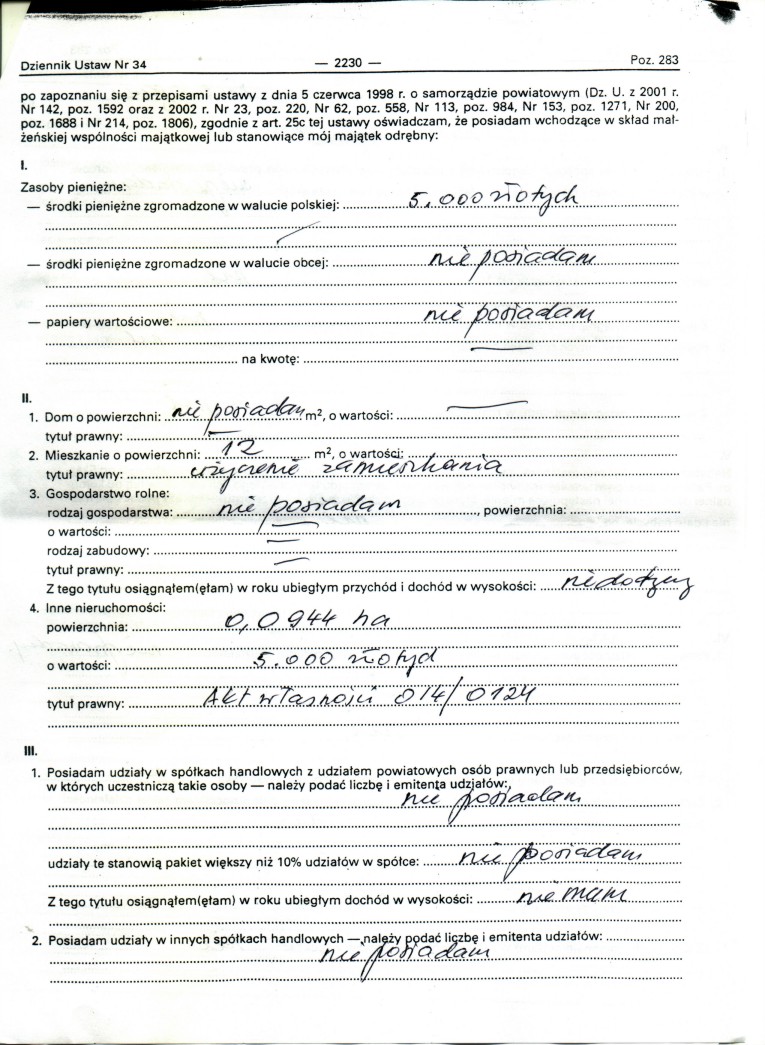 Dziennik Ustaw Nr 34 — 2230 — Poz. 283
po zapoznaniu się z przepisami ustawy z dnia 5 czerwca 1998 r. o samorządzie powiatowym (Dz. U. z 2001 r.
Nr 142, poz. 1592 oraz z 2002 r. Nr 23, poz. 220, Nr 62, poz. 558, Nr 113, poz. 984, Nr 153, poz. 1271, Nr 200,
poz. 1688 i Nr 214, poz. 1806), zgodnie z art. 25c tej ustawy oświadczam, że posiadam wchodzące w skład mał-
żeńskiej wspólności majątkowej lub stanowiące mój majątek odrębny:
I.
Zasoby pieniężne:
— środki pieniężne zgromadzone w walucie polskiej: 5.000 złotych
— środki pieniężne zgromadzone w walucie obcej: nie posiadam
— papiery wartościowe: nie posiadam
na kwotę:
II.
1. Dom o powierzchni: nie posiadam m², o wartości: —
tytuł prawny: —
2. Mieszkanie o powierzchni: 12 m², o wartości:
tytuł prawny: użyczenie zamieszkania
3. Gospodarstwo rolne:
rodzaj gospodarstwa: nie posiadam, powierzchnia:
o wartości: —
rodzaj zabudowy: —
tytuł prawny: —
Z tego tytułu osiągnąłem(ęłam) w roku ubiegłym przychód i dochód w wysokości: nie dotyczy
4. Inne nieruchomości:
powierzchnia: 0,0944 ha
o wartości: 5.000 złotych
tytuł prawny: Akt własności 014/0124
III.
1. Posiadam udziały w spółkach handlowych z udziałem powiatowych osób prawnych lub przedsiębiorców,
w których uczestniczą takie osoby — należy podać liczbę i emitenta udziałów:
nie posiadam
udziały te stanowią pakiet większy niż 10% udziałów w spółce: nie posiadam
Z tego tytułu osiągnąłem(ęłam) w roku ubiegłym dochód w wysokości: nie mam
2. Posiadam udziały w innych spółkach handlowych — należy podać liczbę i emitenta udziałów:
nie posiadam